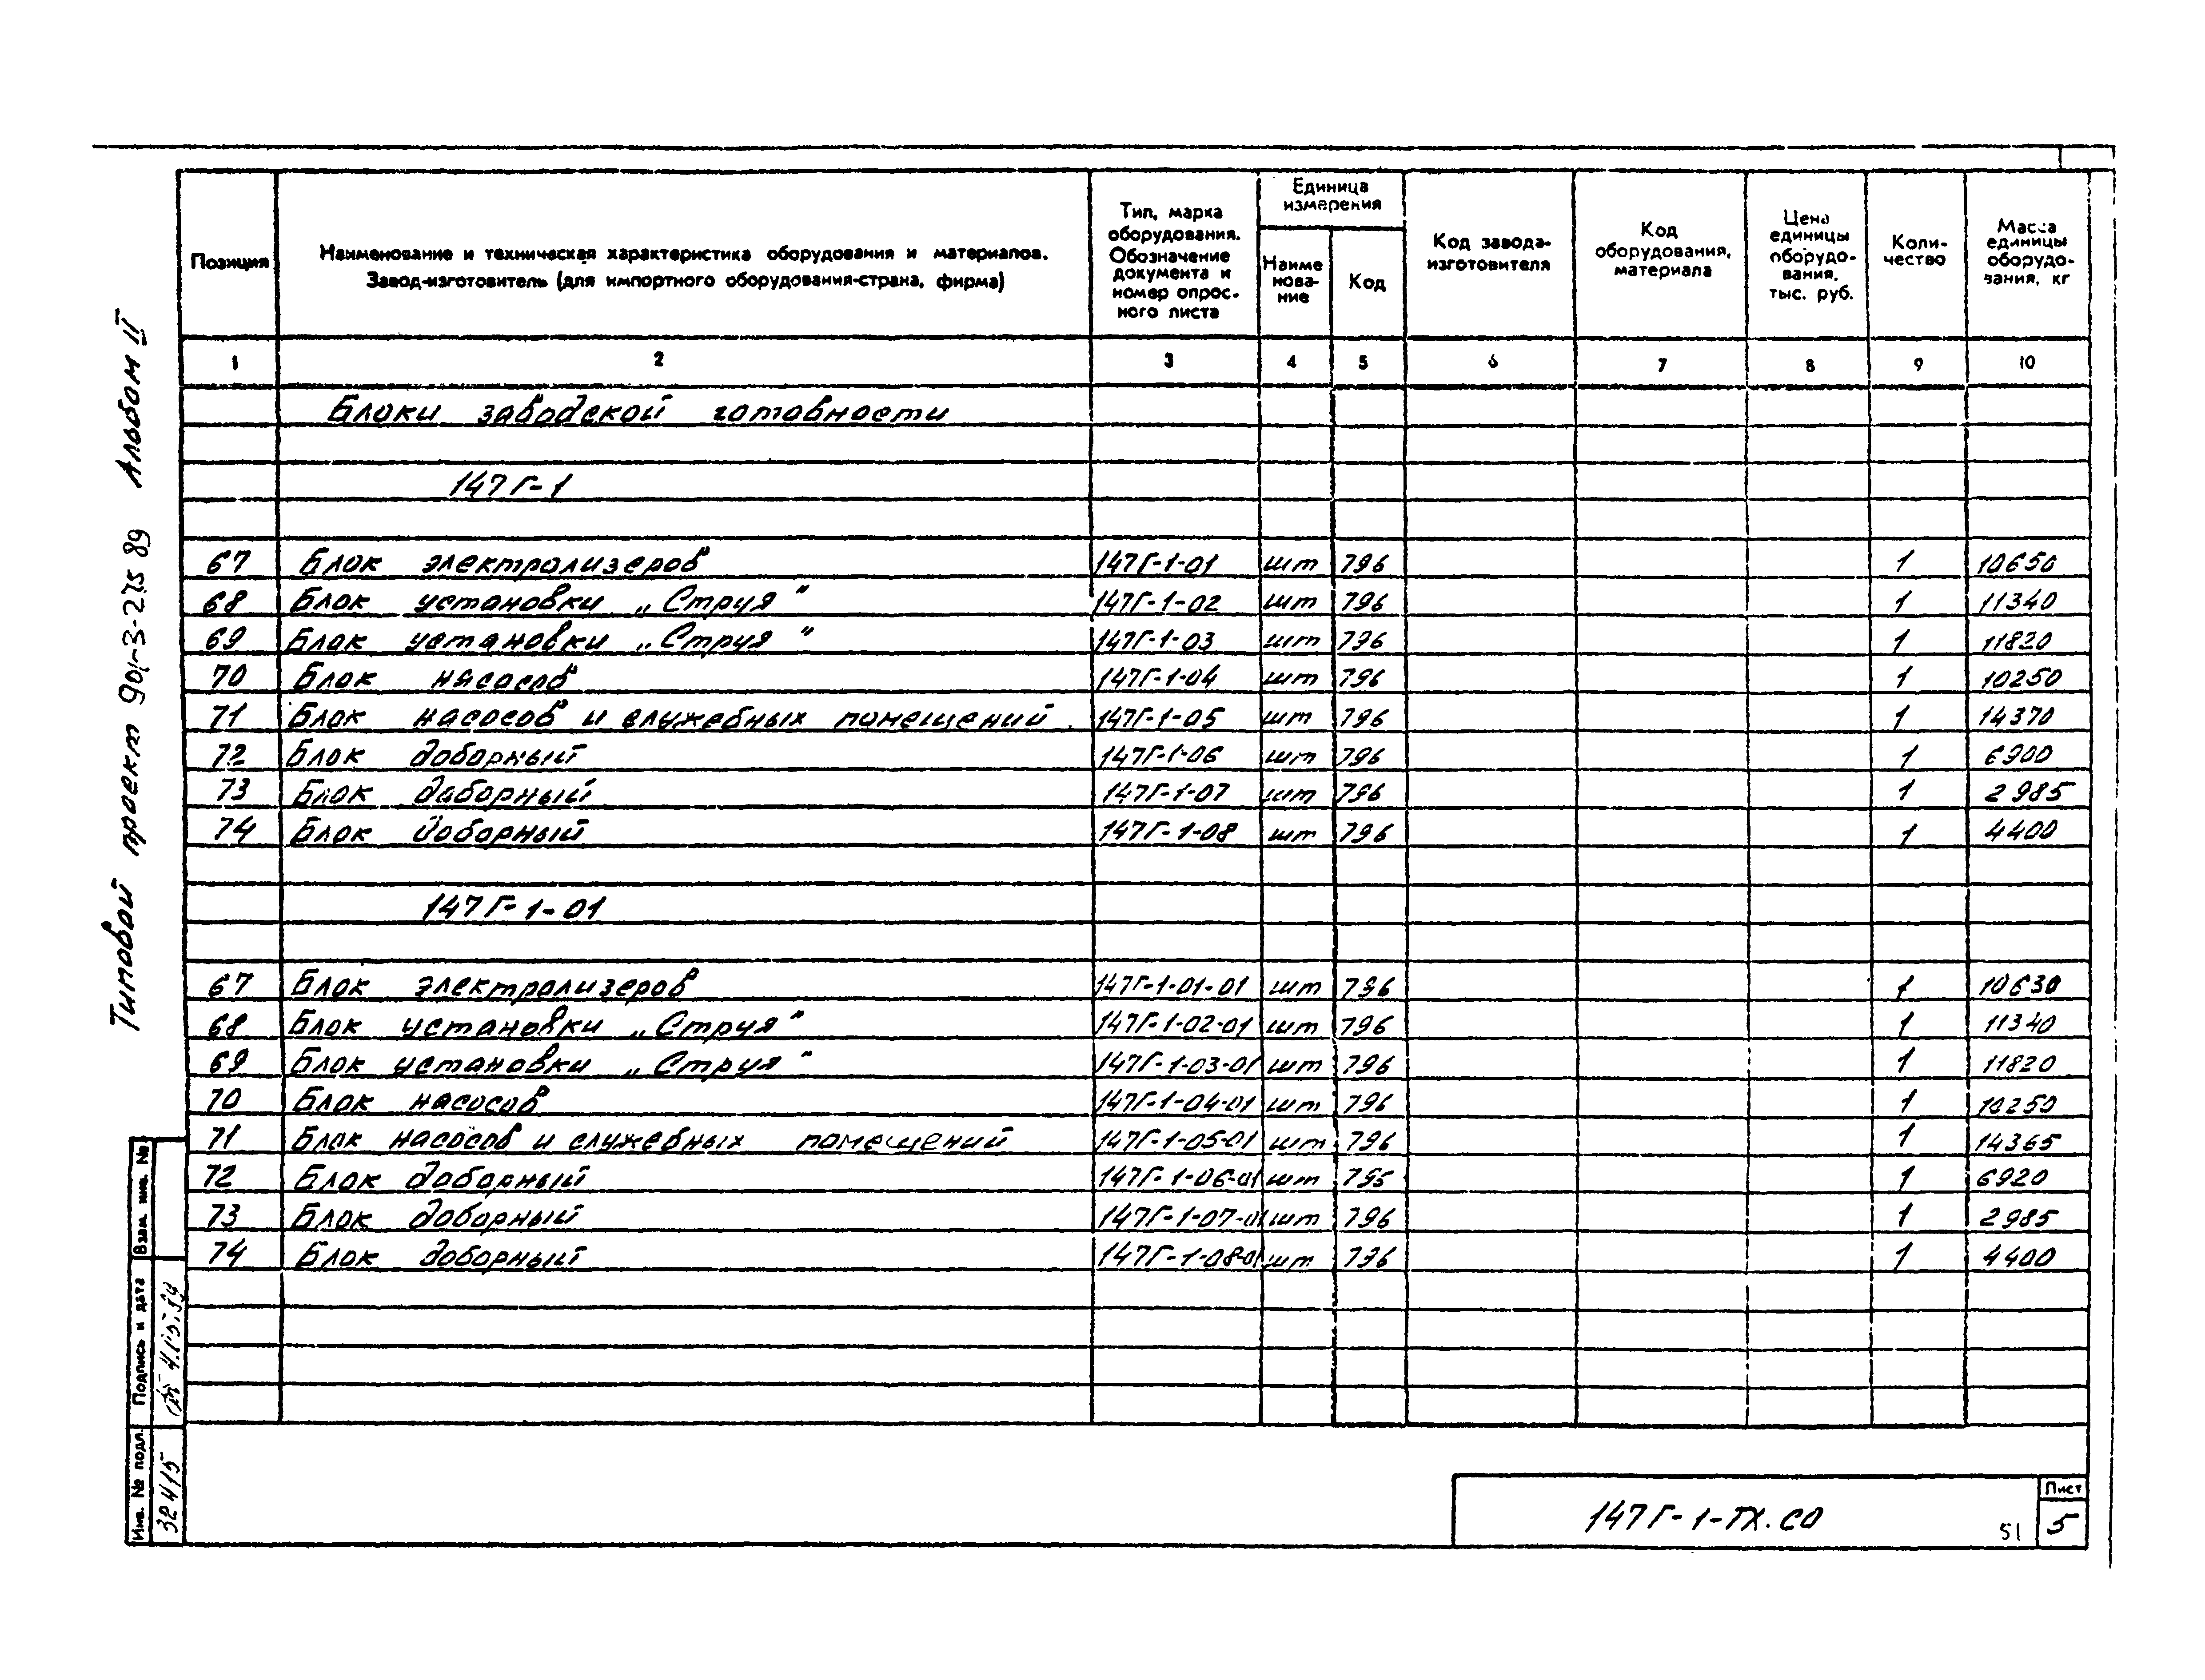 Типовой проект 901-3-275 89 Альбом II
Позиция
Наименование и техническая характеристика оборудования и материалов.
Завод-изготовитель (для импортного оборудования-страна, фирма)
Тип, марка
оборудования.
Обозначение
документа и
номер опрос-
ного листа
Единица
измерения
Наиме
нова-
ние
Код
Код завода-
изготовителя
Код
оборудования,
материала
Цена
единицы
оборудо-
вания,
тыс. руб.
Коли-
чество
Масса
единицы
оборудо-
вания, кг
1 2 3 4 5 6 7 8 9 10
Блоки заводской готовности
147Г-1
67 Блок электролизеров 147Г-1-01 шт 796 1 10650
68 Блок установки „Струя" 147Г-1-02 шт 796 1 11340
69 Блок установки „Струя" 147Г-1-03 шт 796 1 11820
70 Блок насосов 147Г-1-04 шт 796 1 10250
71 Блок насосов и служебных помещений 147Г-1-05 шт 796 1 14370
72 Блок доборный 147Г-1-06 шт 796 1 6900
73 Блок доборный 147Г-1-07 шт 796 1 2985
74 Блок доборный 147Г-1-08 шт 796 1 4400
147Г-1-01
67 Блок электролизеров 147Г-1-01-01 шт 796 1 10630
68 Блок установки „Струя" 147Г-1-02-01 шт 796 1 11340
69 Блок установки „Струя" 147Г-1-03-01 шт 796 1 11820
70 Блок насосов 147Г-1-04-01 шт 796 1 10250
71 Блок насосов и служебных помещений 147Г-1-05-01 шт 796 1 14365
72 Блок доборный 147Г-1-06-01 шт 796 1 6920
73 Блок доборный 147Г-1-07-01 шт 796 1 2985
74 Блок доборный 147Г-1-08-01 шт 796 1 4400
Взам. инв. №
Подпись и дата
Инв. № подл.
32415
147Г-1-ТХ.СО
51
Лист
5